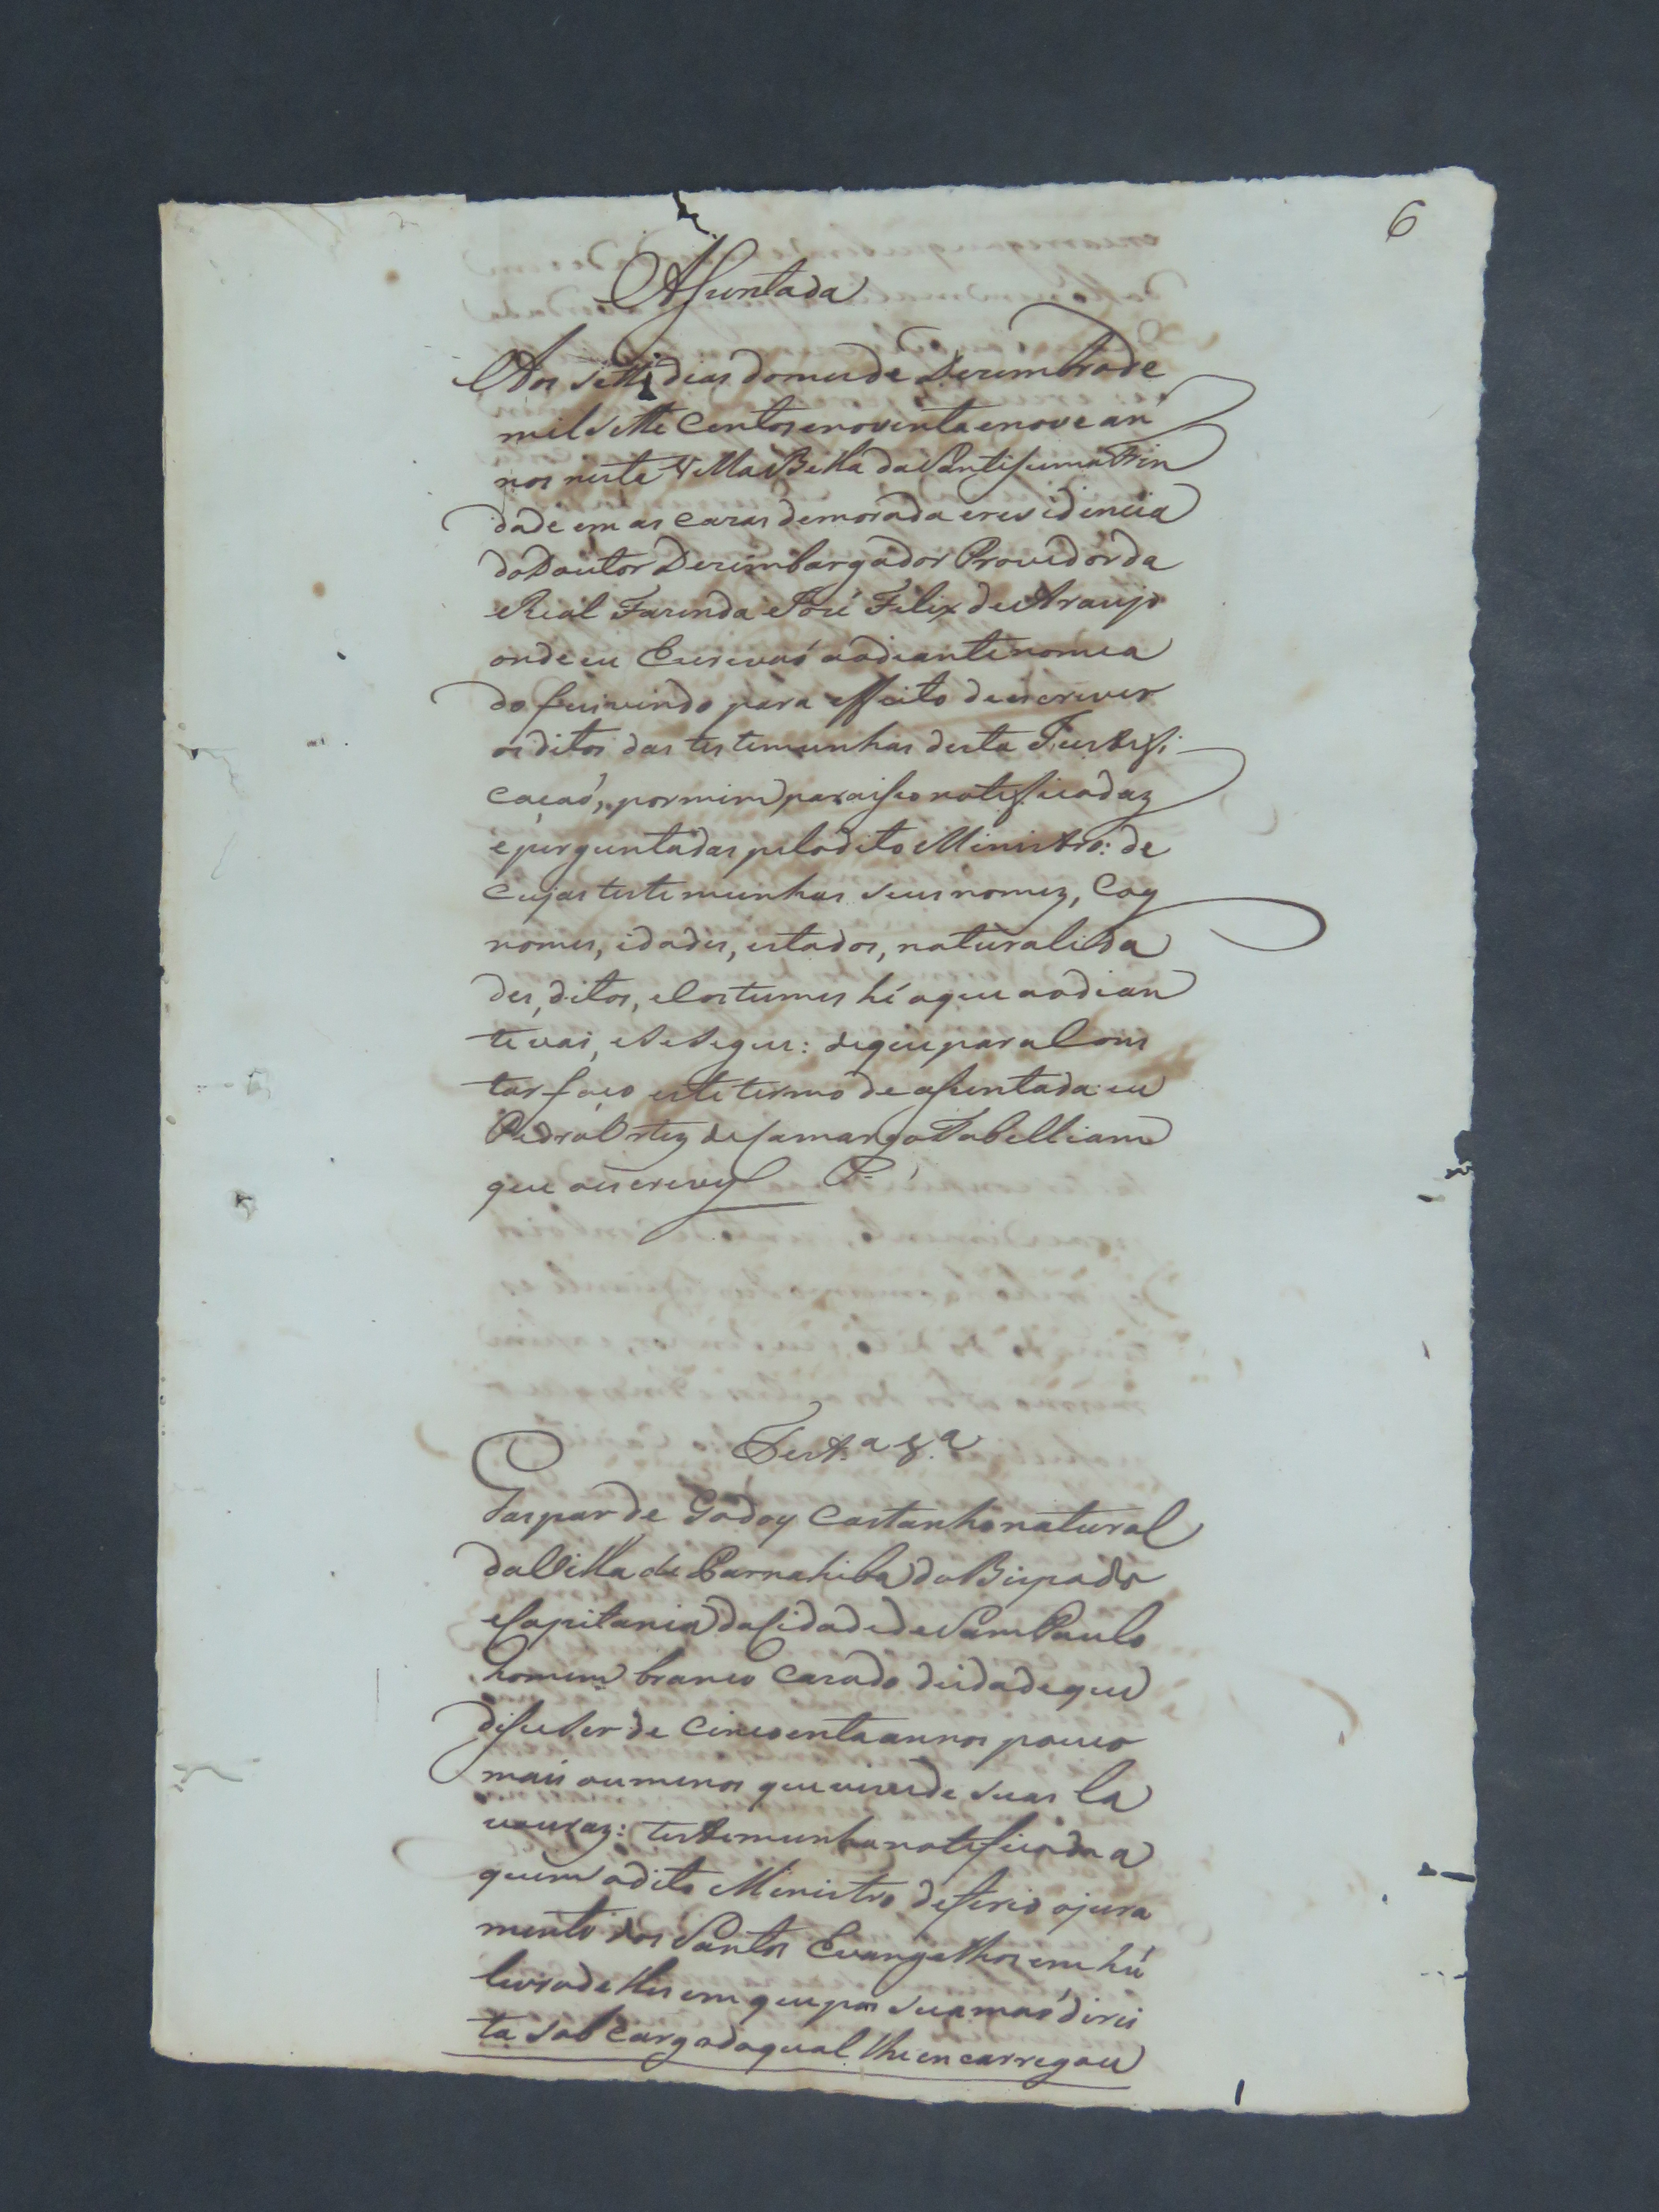 6
Assentada
Aos sette dias do mes de Dezembro de
mil sette centos e noventa e nove an
nos nesta Villa Bella da Santissima Trin
dade em as cazas de morada e residencia
do Doutor Dezembargador Provedor da
Real Fazenda José Felix de Araujo
onde eu Escrivaõ aodiante nomea
do fui vindo para effeito de escrever
os ditos das testemunhas desta Justifi
caçaõ, por mim para isso notificadaz
e perguntadas pelo dito Ministro: de
cujas testemunhas seus nomez, Cog
nomes, idades, estados, naturalida
des, ditos, e Costumes hé o que aodian
te vai, e se segue: de que para Cons
tar faço este termo de assentada eu
Pedro Ortiz de Camargo Tabelliam
que o escrevy
Test.ª 8.ª
Gaspar de Godoy Castanho natural
da Villa de Parnahiba do Bispado
e Capitania da Cidade de Sam Paulo
homem branco cazado de idade que
disse ser de cincoenta annos pouco
mais ou menos que vive de suas la
vouraz: testemunha notificada a
quem o dito Ministro deferio o jura
mento dos Santos Evangelhos em hú
livro delles em que pos sua maõ direi
ta sob cargo do qual lhe encarregou